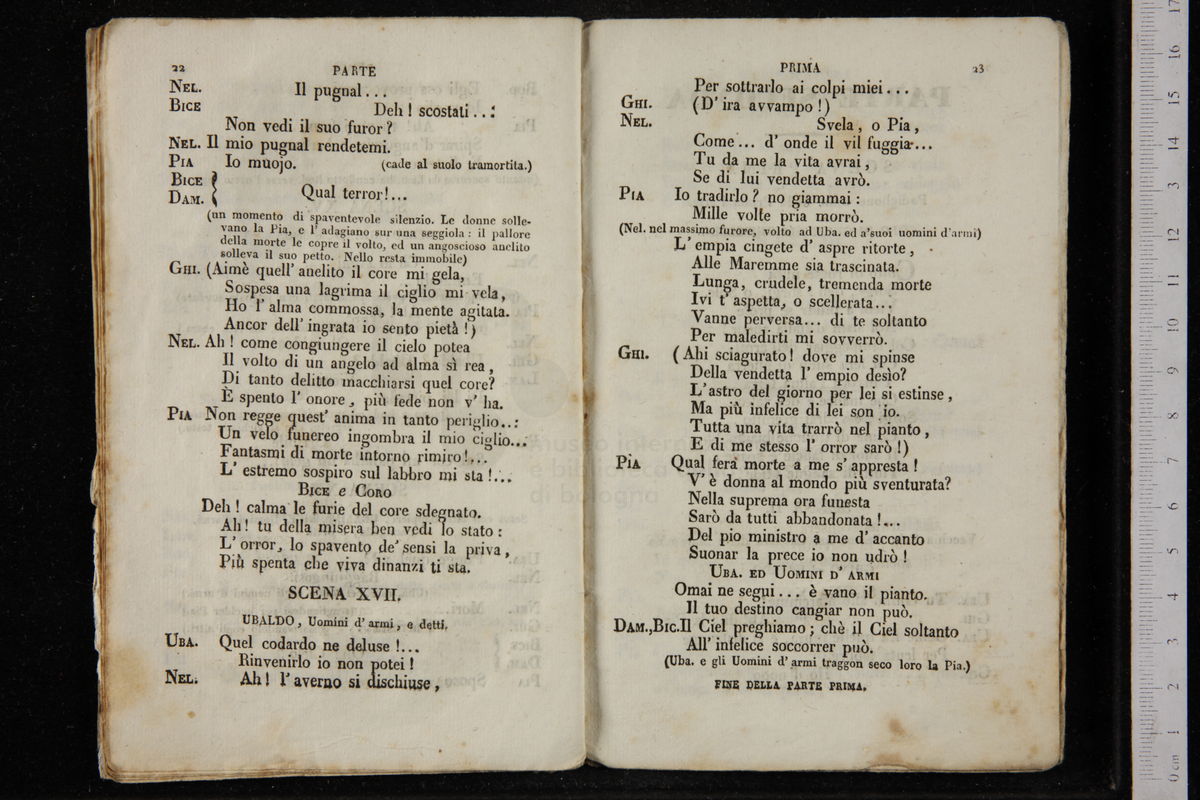 22
PARTE
NEL. Il pugnal...
BICE Deh! scostati...
Non vedi il suo furor?
NEL. Il mio pugnal rendetemi.
PIA Io muojo. (cade al suolo tramortita.)
BICE
DAM. Qual terror!...
(un momento di spaventevole silenzio. Le donne solle-
vano la Pia, e l' adagiano sur una seggiola: il pallore
della morte le copre il volto, ed un angoscioso anelito
solleva il suo petto. Nello resta immobile)
GHI. (Aimè quell' anelito il core mi gela,
Sospesa una lagrima il ciglio mi vela,
Ho l' alma commossa, la mente agitata.
Ancor dell' ingrata io sento pietà!)
NEL. Ah! come congiungere il cielo potea
Il volto di un angelo ad alma sì rea,
Di tanto delitto macchiarsi quel core?
È spento l' onore, più fede non v' ha.
PIA Non regge quest' anima in tanto periglio...
Un velo funereo ingombra il mio ciglio...
Fantasmi di morte intorno rimiro!...
L' estremo sospiro sul labbro mi sta!...
BICE e CORO
Deh! calma le furie del core sdegnato.
Ah! tu della misera ben vedi lo stato:
L' orror, lo spavento de' sensi la priva,
Più spenta che viva dinanzi ti sta.
SCENA XVII.
UBALDO, Uomini d' armi, e detti.
UBA. Quel codardo ne deluse!...
Rinvenirlo io non potei!
NEL. Ah! l' averno si dischiuse,
PRIMA
23
Per sottrarlo ai colpi miei...
GHI. (D' ira avvampo!)
NEL. Svela, o Pia,
Come... d' onde il vil fuggia...
Tu da me la vita avrai,
Se di lui vendetta avrò.
PIA Io tradirlo? no giammai:
Mille volte pria morrò.
(Nel. nel massimo furore, volto ad Uba. ed a'suoi uomini d'armi)
L' empia cingete d' aspre ritorte,
Alle Maremme sia trascinata.
Lunga, crudele, tremenda morte
Ivi t' aspetta, o scellerata...
Vanne perversa... di te soltanto
Per maledirti mi sovverrò.
GHI. (Ahi sciagurato! dove mi spinse
Della vendetta l' empio desìo?
L'astro del giorno per lei si estinse,
Ma più infelice di lei son io.
Tutta una vita trarrò nel pianto,
E di me stesso l' orror sarò!)
PIA Qual fera morte a me s' appresta!
V' è donna al mondo più sventurata?
Nella suprema ora funesta
Sarò da tutti abbandonata!...
Del pio ministro a me d' accanto
Suonar la prece io non udrò!
UBA. ED UOMINI D' ARMI
Omai ne segui... è vano il pianto.
Il tuo destino cangiar non può.
DAM.,BIC.Il Ciel preghiamo; chè il Ciel soltanto
All' infelice soccorrer può.
(Uba. e gli Uomini d' armi traggon seco loro la Pia.)
FINE DELLA PARTE PRIMA.
museo internazionale
e biblioteca
di bologna
0 cm 1 2 3 4 5 6 7 8 9 10 11 12 13 14 15 16 17